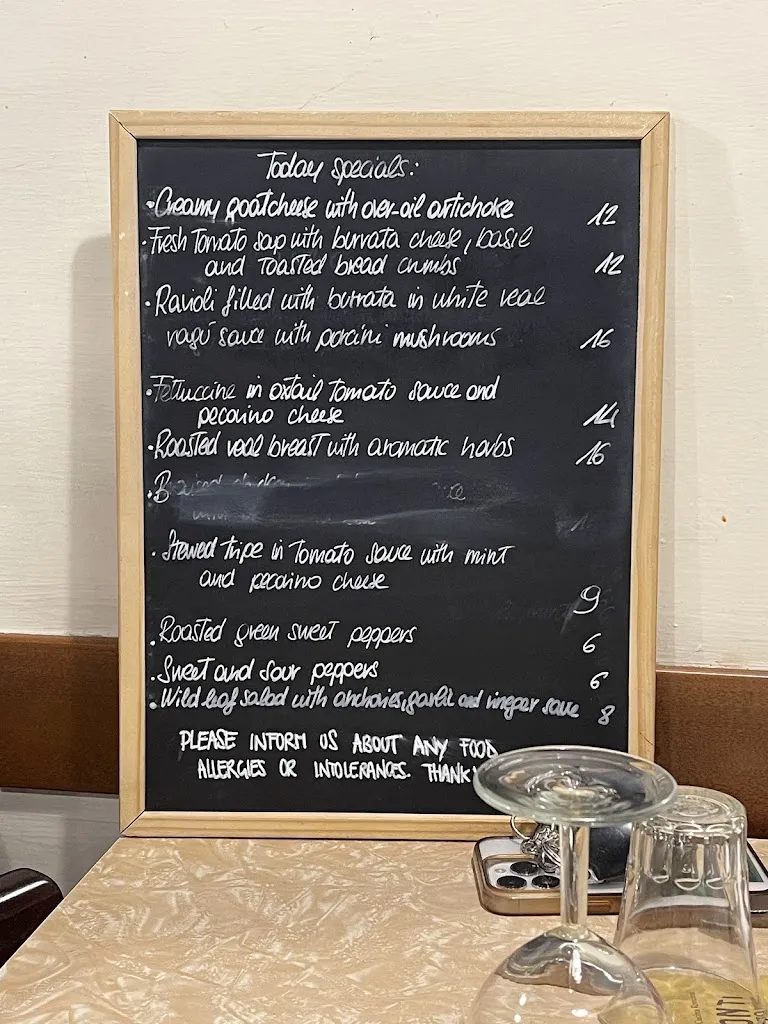 Today specials:
• Creamy goatcheese with over-oil artichoke 12
• Fresh Tomato soup with burrata cheese, basil
and toasted bread crumbs 12
• Ravioli filled with burrata in white veal
ragú sauce with porcini mushrooms 16
• Fettuccine in oxtail tomato sauce and
pecorino cheese 14
• Roasted veal breast with aromatic herbs 16
• Stewed tripe in tomato sauce with mint
and pecorino cheese 9
• Roasted green sweet peppers 6
• Sweet and sour peppers 6
• Wild leaf salad with anchovies, garlic and vinegar sauce 8
PLEASE INFORM US ABOUT ANY FOOD
ALLERGIES OR INTOLERANCES. THANK